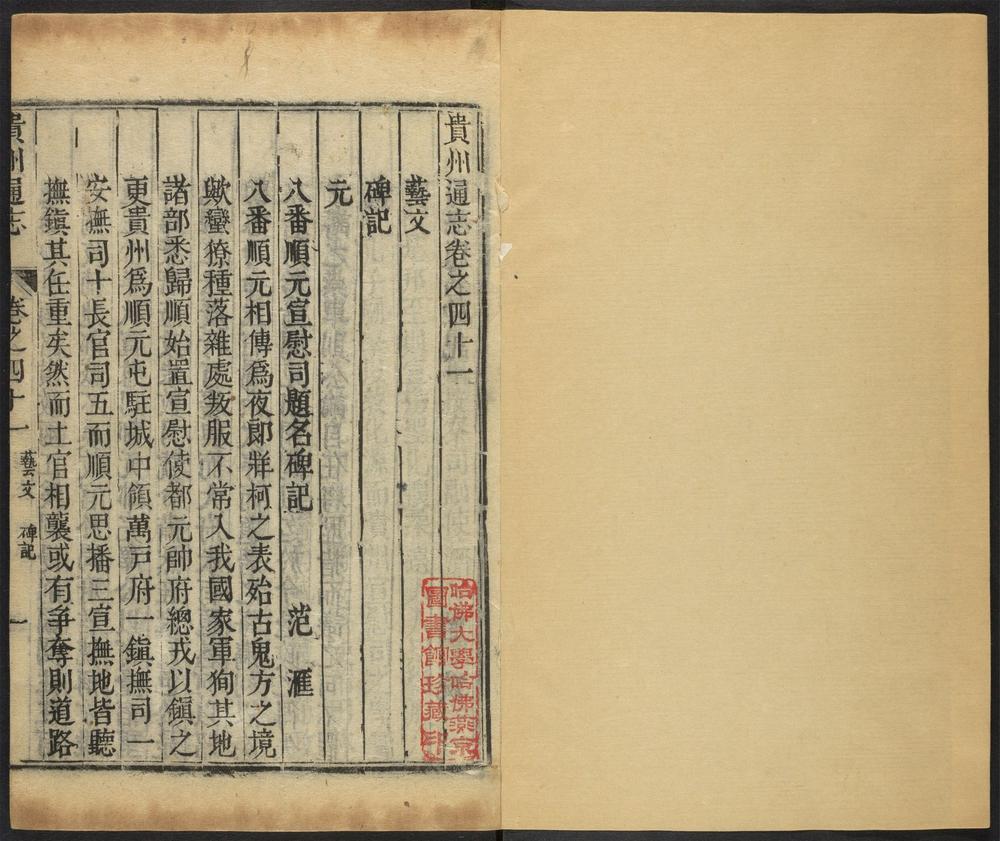 貴州通志卷之四十一
藝文
碑記
元
八番順元宣慰司題名碑記 范滙
八番順元相傳爲夜郎牂柯之表殆古鬼方之境
歟蠻獠種落雜處叛服不常入我國家軍狥其地
諸部悉歸順始置宣慰使都元帥府總戎以鎭之
更貴州爲順元屯駐城中領萬戸府一鎭撫司一
安撫司十長官司五而順元思播三宣撫地皆聽
撫鎭其任重矣然而土官相襲或有爭奪則道路
貴州通志 卷之四十一 藝文 碑記 一
哈佛大學哈佛燕京
圖書館珍藏印